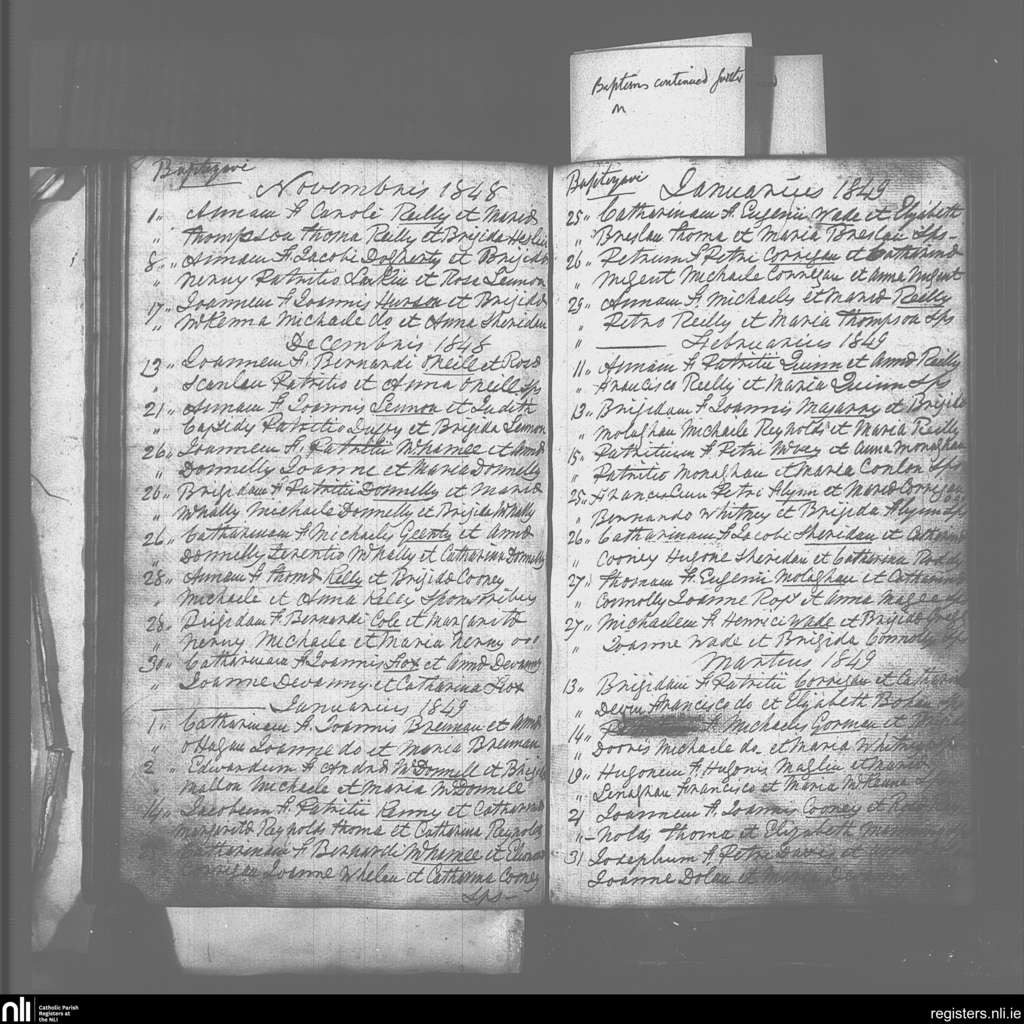 Baptisms continued
on
Baptizavi
Novembris 1848
1 " Annam F. Caroli Reilly et Maria
" Thompson Thoma Reilly et Brigida
8 " Annam F. Iacobi Dogherty et Brigida
" Nerny Patritio Larkin et Rosa Lennon
17 " Ioannem F. Ioannis et Brigida
" McKenna Michaele do et Anna Sheridan
Decembris 1848
13 " Ioannem F. Bernardi ONeill et Rosa
" Scanlan Patritio et Anna ONeill Sps
21 " Annam F. Ioannis Lennon et Judith
" Cassidy Patritio Duffy et Brigida Lennon
26 " Ioannem F. Patritii McNamee et Anna
" Donnelly Ioanne et Maria Donnelly
26 " Brigidam F. Patritii Donnelly et Maria
" Whally Michaele Donnelly et Brigida Whally
26 " Catharinam F. Michaelis Geenty et Anna
" Donnelly Terentio Whally et Catharina Donnelly
28 " Annam F. Thoma Kelly et Brigida Cooney
" Michaele et Anna Kelly Sponsoribus
28 " Brigidam F. Bernardi Cole et Margarita
" Nerny Michaele et Maria Nerny
30 " Catharinam F. Ioannis Fox et Anna Devanny
" Ioanne Devanny et Catharina Fox
Ianuarius 1849
1 " Catharinam F. Ioannis Brennan et Anna
" OHagan Ioanne do et Maria Brennan
2 " Edwardum F. Andrea McDonnell et Brigida
" Mallon Michaele et Maria McDonnell
14 " Iacobum F. Patritii Kenny et Catharina
Margarita Reynolds Thoma et Catharina Reynolds
Catharinam F. Bernardi McNamee et
Corrigan Ioanne Whelan et Catharina Cooney
Sps
Baptizavi
Ianuarius 1849
25 " Catharinam F. Eugenii Wade et Elizabeth
" Breslan Thoma et Maria Breslan Sps
26 " Petrum F. Petri Corrigan et Catharina
" Nugent Michaele Corrigan et Anna Nugent
29 " Annam F. Michaelis et Maria Reilly
" Petro Reilly et Maria Thompson Sps
" Februarius 1849
11 " Annam F. Patritii Quinn et Anna Reilly
" Francisco Reilly et Maria Quinn Sps
13 " Brigidam F. Ioannis et Brigida
" Molaghan Michaele Reynolds et Maria Reilly
15 " Patritium F. Petri et Anna Monaghan
" Patritio Monaghan et Maria Conlon Sps
25 " Franciscum Petri Flynn et Maria Corrigan
" Bernardo Whitney et Brigida Flynn Sps
26 " Catharinam F. Iacobi Sheridan et Catharina
" Cooney Hugone Sheridan et Catharina Roddy
27 " Thomam F. Eugenii Molaghan et Catharina
" Connolly Ioanne et Anna Magee
27 " Michaelem F. Henrici Wade et Brigida
" Ioanne Wade et Brigida Connolly Sps
Martius 1849
13 " Brigidam F. Patritii Corrigan et Catharina
" Devin Francisco do et Elizabeth Bohan
14 " F. Michaelis Gorman et
" Dooris Michaele do et Maria Whitney
19 " Hugonem F. Hugonis Maglin et Maria
" Lenaghan Francisco et Maria McKenna
21 Ioannem F. Ioannis Cooney et
" Nolds Thoma et Elizabeth
31 Iosephum F. Petri Davis et
Ioanne Dolan et Maria
nli
Catholic Parish
Registers at
the NLI
registers.nli.ie